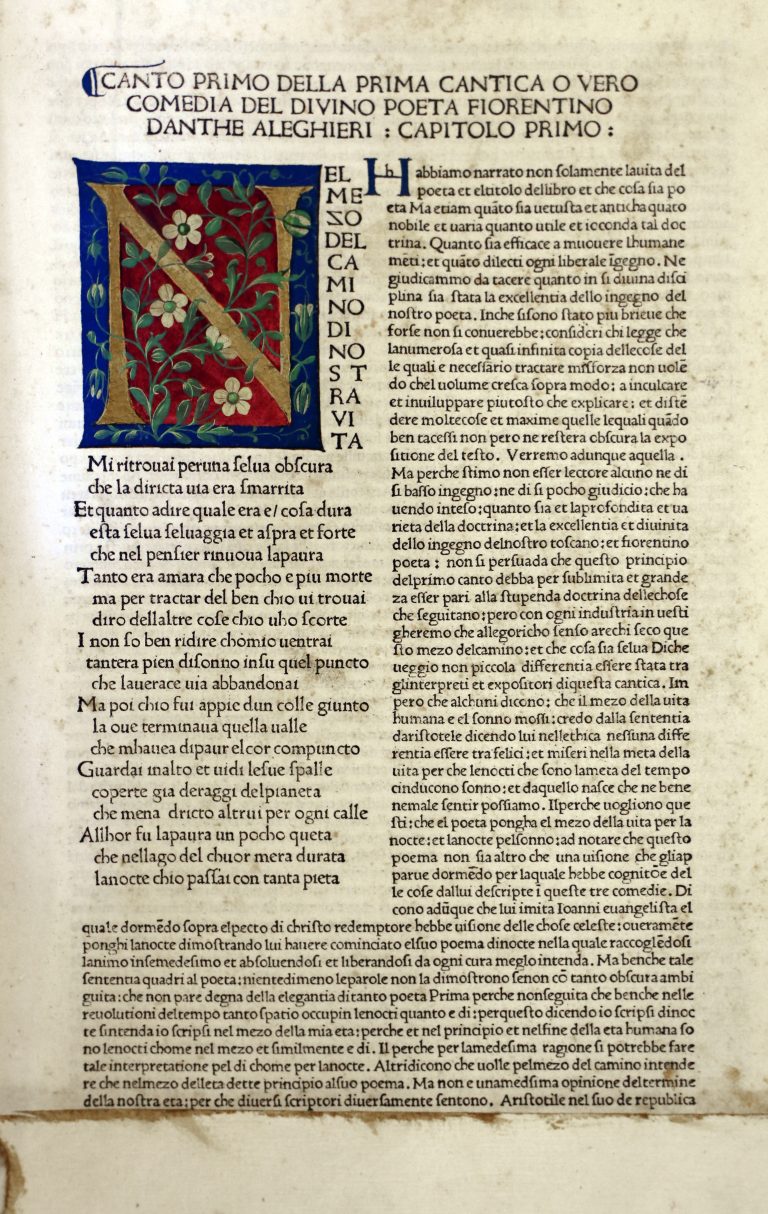 CANTO PRIMO DELLA PRIMA CANTICA O VERO
COMEDIA DEL DIVINO POETA FIORENTINO
DANTHE ALEGHIERI : CAPITOLO PRIMO :
N
EL
ME
ZO
DEL
CA
MI
NO
DI
NO
S T
RA
VI
TA
Mi ritrouai peruna ſelua obſcura
che la diricta uia era ſmarrita
Et quanto adire quale era e/ coſa dura
eſta ſelua ſeluaggia et aſpra et forte
che nel penſier rinuoua lapaura
Tanto era amara che pocho e piu morte
ma per tractar del ben chio ui trouai
diro dellaltre coſe chio uho ſcorte
I non ſo ben ridire chomio uentrai
tantera pien diſonno inſu quel puncto
che lauerace uia abbandonai
Ma poi chio fui appie dun colle giunto
la oue terminaua quella ualle
che mhauea dipaur el cor compuncto
Guardai inalto et uidi leſue ſpalle
coperte gia deraggi delpianeta
che mena dricto altrui per ogni calle
Allhor fu lapaura un pocho queta
che nellago del chuor mera durata
lanocte chio paſſai con tanta pieta
H h abbiamo narrato non ſolamente lauita del
poeta et elutolo dellibro et che coſa ſia po
eta Ma etiam quāto ſia uetuſta et anticha quāto
nobile et uaria quanto utile et ioconda tal doc
trina. Quanto ſia efficace a muouere lhumane
mēti; et quāto dilecti ogni liberale īgegno. Ne
giudicammo da tacere quanto in ſi diuina diſci
plina ſia ſtata la excellentia dello ingegno del
noſtro poeta. Inche ſiſono ſtato piu brieue che
forſe non ſi conuerebbe; conſideri chi legge che
lanumeroſa et quaſi infinita copia dellecoſe del
le quali e neceſſario tractare miſforza non uolē
do chel uolume creſca ſopra modo; a inculcare
et inuiluppare piutoſto che explicare; et diſtē
dere moltecoſe et maxime quelle lequali quādo
ben taceſſi non pero ne reſtera obſcura la expo
ſitione del teſto. Verremo adunque aquella .
Ma perche ſtimo non eſſer lectore alcuno ne di
ſi baſſo ingegno; ne di ſi pocho giudicio; che ha
uendo inteſo; quanto ſia et laprofondita et ua
rieta della doctrina; et la excellentia et diuinita
dello ingegno delnoſtro toſcano; et fiorentino
poeta ; non ſi perſuada che queſto principio
delprimo canto debba per ſublimita et grande
za eſſer pari alla ſtupenda doctrina dellechoſe
che ſeguitano; pero con ogni induſtria in ueſti
gheremo che allegoricho ſenſo arechi ſeco que
ſto mezo delcamino; et che coſa ſia ſelua Diche
ueggio non piccola differentia eſſere ſtata tra
glinterpreti et expoſitori diqueſta cantica. Im
pero che alchuni dicono; che il mezo della uita
humana e el ſonno moſſi; credo dalla ſententia
dariſtotele dicendo lui nellethica neſſuna diffe
rentia eſſere tra felici; et miſeri nella meta della
uita per che lenocti che ſono lameta del tempo
cinducono ſonno; et daquello naſce che ne bene
nemale ſentir poſſiamo. Ilperche uogliono que
ſti; che el poeta pongha el mezo della uita per la
nocte; et lanocte pelſonno; ad notare che queſto
poema non ſia altro che una uiſione che gliap
parue dormēdo per laquale hebbe cognitiōe del
le coſe dallui deſcripte ī queſte tre comedie. Di
cono adūque che lui imita Ioanni euangeliſta el
quale dormēdo ſopra elpecto di chriſto redemptore hebbe uiſione delle choſe celeſte; oueramēte
ponghi lanocte dimoſtrando lui hauere cominciato elſuo poema dinocte nella quale raccoglēdoſi
lanimo inſemedeſimo et abſoluendoſi et liberandoſi da ogni cura meglo intenda. Ma benche tale
ſententia quadri al poeta; nientedimeno leparole non la dimoſtrono ſenon cō tanto obſcura ambi
guita; che non pare degna della elegantia ditanto poeta Prima perche nonſeguita che benche nelle
reuolutioni deltempo tanto ſpatio occupin lenocti quanto e di; perqueſto dicendo io ſcripſi dinoc
te ſintenda io ſcripſi nel mezo della mia eta; perche et nel principio et nelfine della eta humana ſo
no lenocti chome nel mezo et ſimilmente e di. Il perche per lamedeſima ragione ſi potrebbe fare
tale interpretatione pel di chome per lanocte. Altridicono che uolle pelmezo del camino intende
re che nelmezo delleta dette principio alſuo poema. Ma non e unamedſima opinione deltermine
della noſtra eta; per che diuerſi ſcriptori diuerſamente ſentono. Ariſtotile nel ſuo de republica